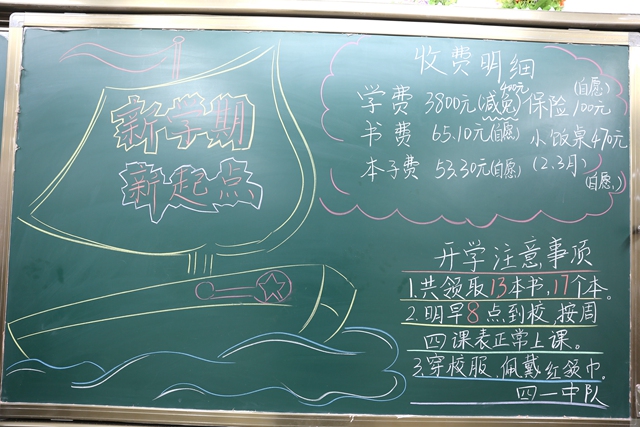 新学期
新起点
收费明细
学费 3800元(减免400元) 保险100元(自愿)
书费 65.10元(自愿) 小饭桌470元
本子费 53.30元(自愿) (2.3月)(自愿)
开学注意事项
1.共领取13本书,17个本。
2.明早8点到校,按周
四课表正常上课。
3.穿校服、佩戴红领巾。
四一中队